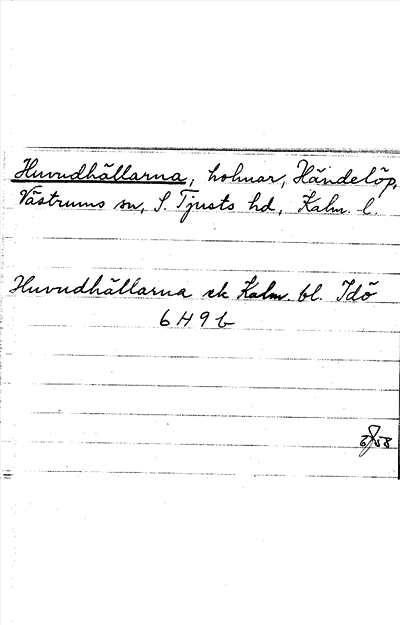 Huvudhällarna, holmar, Händelöp,
Västrums sn, S. Tjusts hd, Kalm. l.
Huvudhällarna ek Kalm. bl. Idö
6 H 9 b